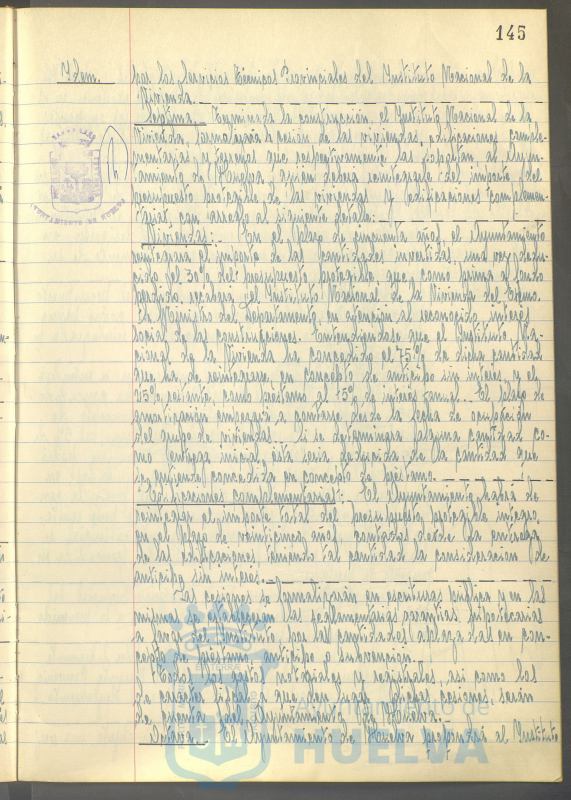 145
Idem.
por los Servicios Técnicos Provinciales del Instituto Nacional de la
Vivienda.
Septima.- Terminada la construcción, el Instituto Nacional de la
Vivienda, formalizará la cesión de las viviendas, edificaciones comple-
mentarias y terrenos que respectivamente las soportan, al Ayun-
tamiento de Huelva, quien deberá reintegrarle del importe del
presupuesto protegible de las viviendas y edificaciones complemen-
tarias, con arreglo al siguiente detalle:
Viviendas: En el plazo de cincuenta años, el Ayuntamiento
reintegrará el importe de las cantidades invertidas, una vez dedu-
cido del 30% del presupuesto protegible, que como prima a fondo
perdido, recabará el Instituto Nacional de la Vivienda del Excmo.
Sr. Ministro del Departamento, en atención al reconocido interés
social de las construcciones. Entendiéndose que el Instituto Na-
cional de la Vivienda ha concedido el 75% de dicha cantidad
que ha de reintegrarse en concepto de anticipo sin interés, y el
25% restante, como préstamo al 5% de interés anual. El plazo de
amortización empezará a contarse desde la fecha de ocupación
del grupo de viviendas. Si se determinara alguna cantidad co-
mo entrega inicial, esta sería deducida de la cantidad que
se entiende concedida en concepto de préstamo.
Edificaciones complementarias: El Ayuntamiento habrá de
reintegrar el importe total del presupuesto protegible integro,
en el plazo de veinticinco años, contados desde la entrega
de las edificaciones, teniendo tal cantidad la consideración de
anticipo sin interés.
Las cesiones se formalizarán en escrituras públicas y en las
mismas se establecerán las reglamentarias garantías hipotecarias
a favor del Instituto, por las cantidades aplazadas en con-
cepto de préstamo, anticipo o subvención.
Todos los gastos notariales y registrales, así como los
de carácter fiscal a que den lugar dichas cesiones, serán
de cuenta del Ayuntamiento de Huelva.
Octava.- El Ayuntamiento de Huelva propondrá al Instituto
AYUNTAMIENTO DE HUELVA
Ayuntamiento de
HUELVA